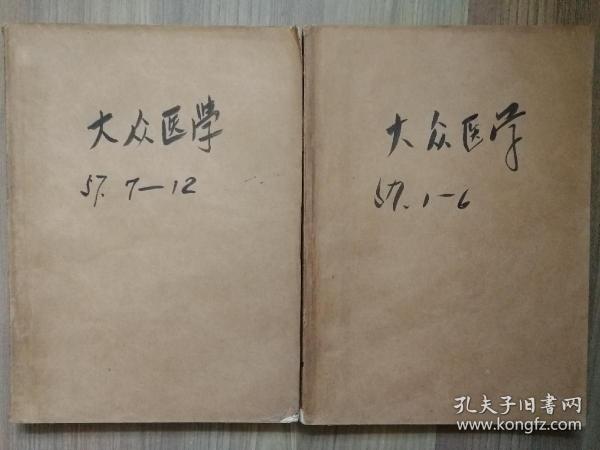 大众医学
57. 7—12
大众医学
57. 1-6
孔夫子旧书网
www.kongfz.com